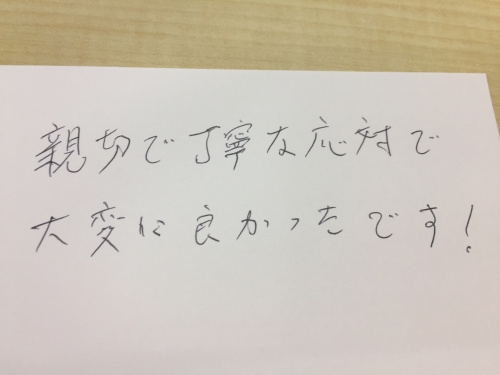 親切で丁寧な応対で
大変に良かったです!